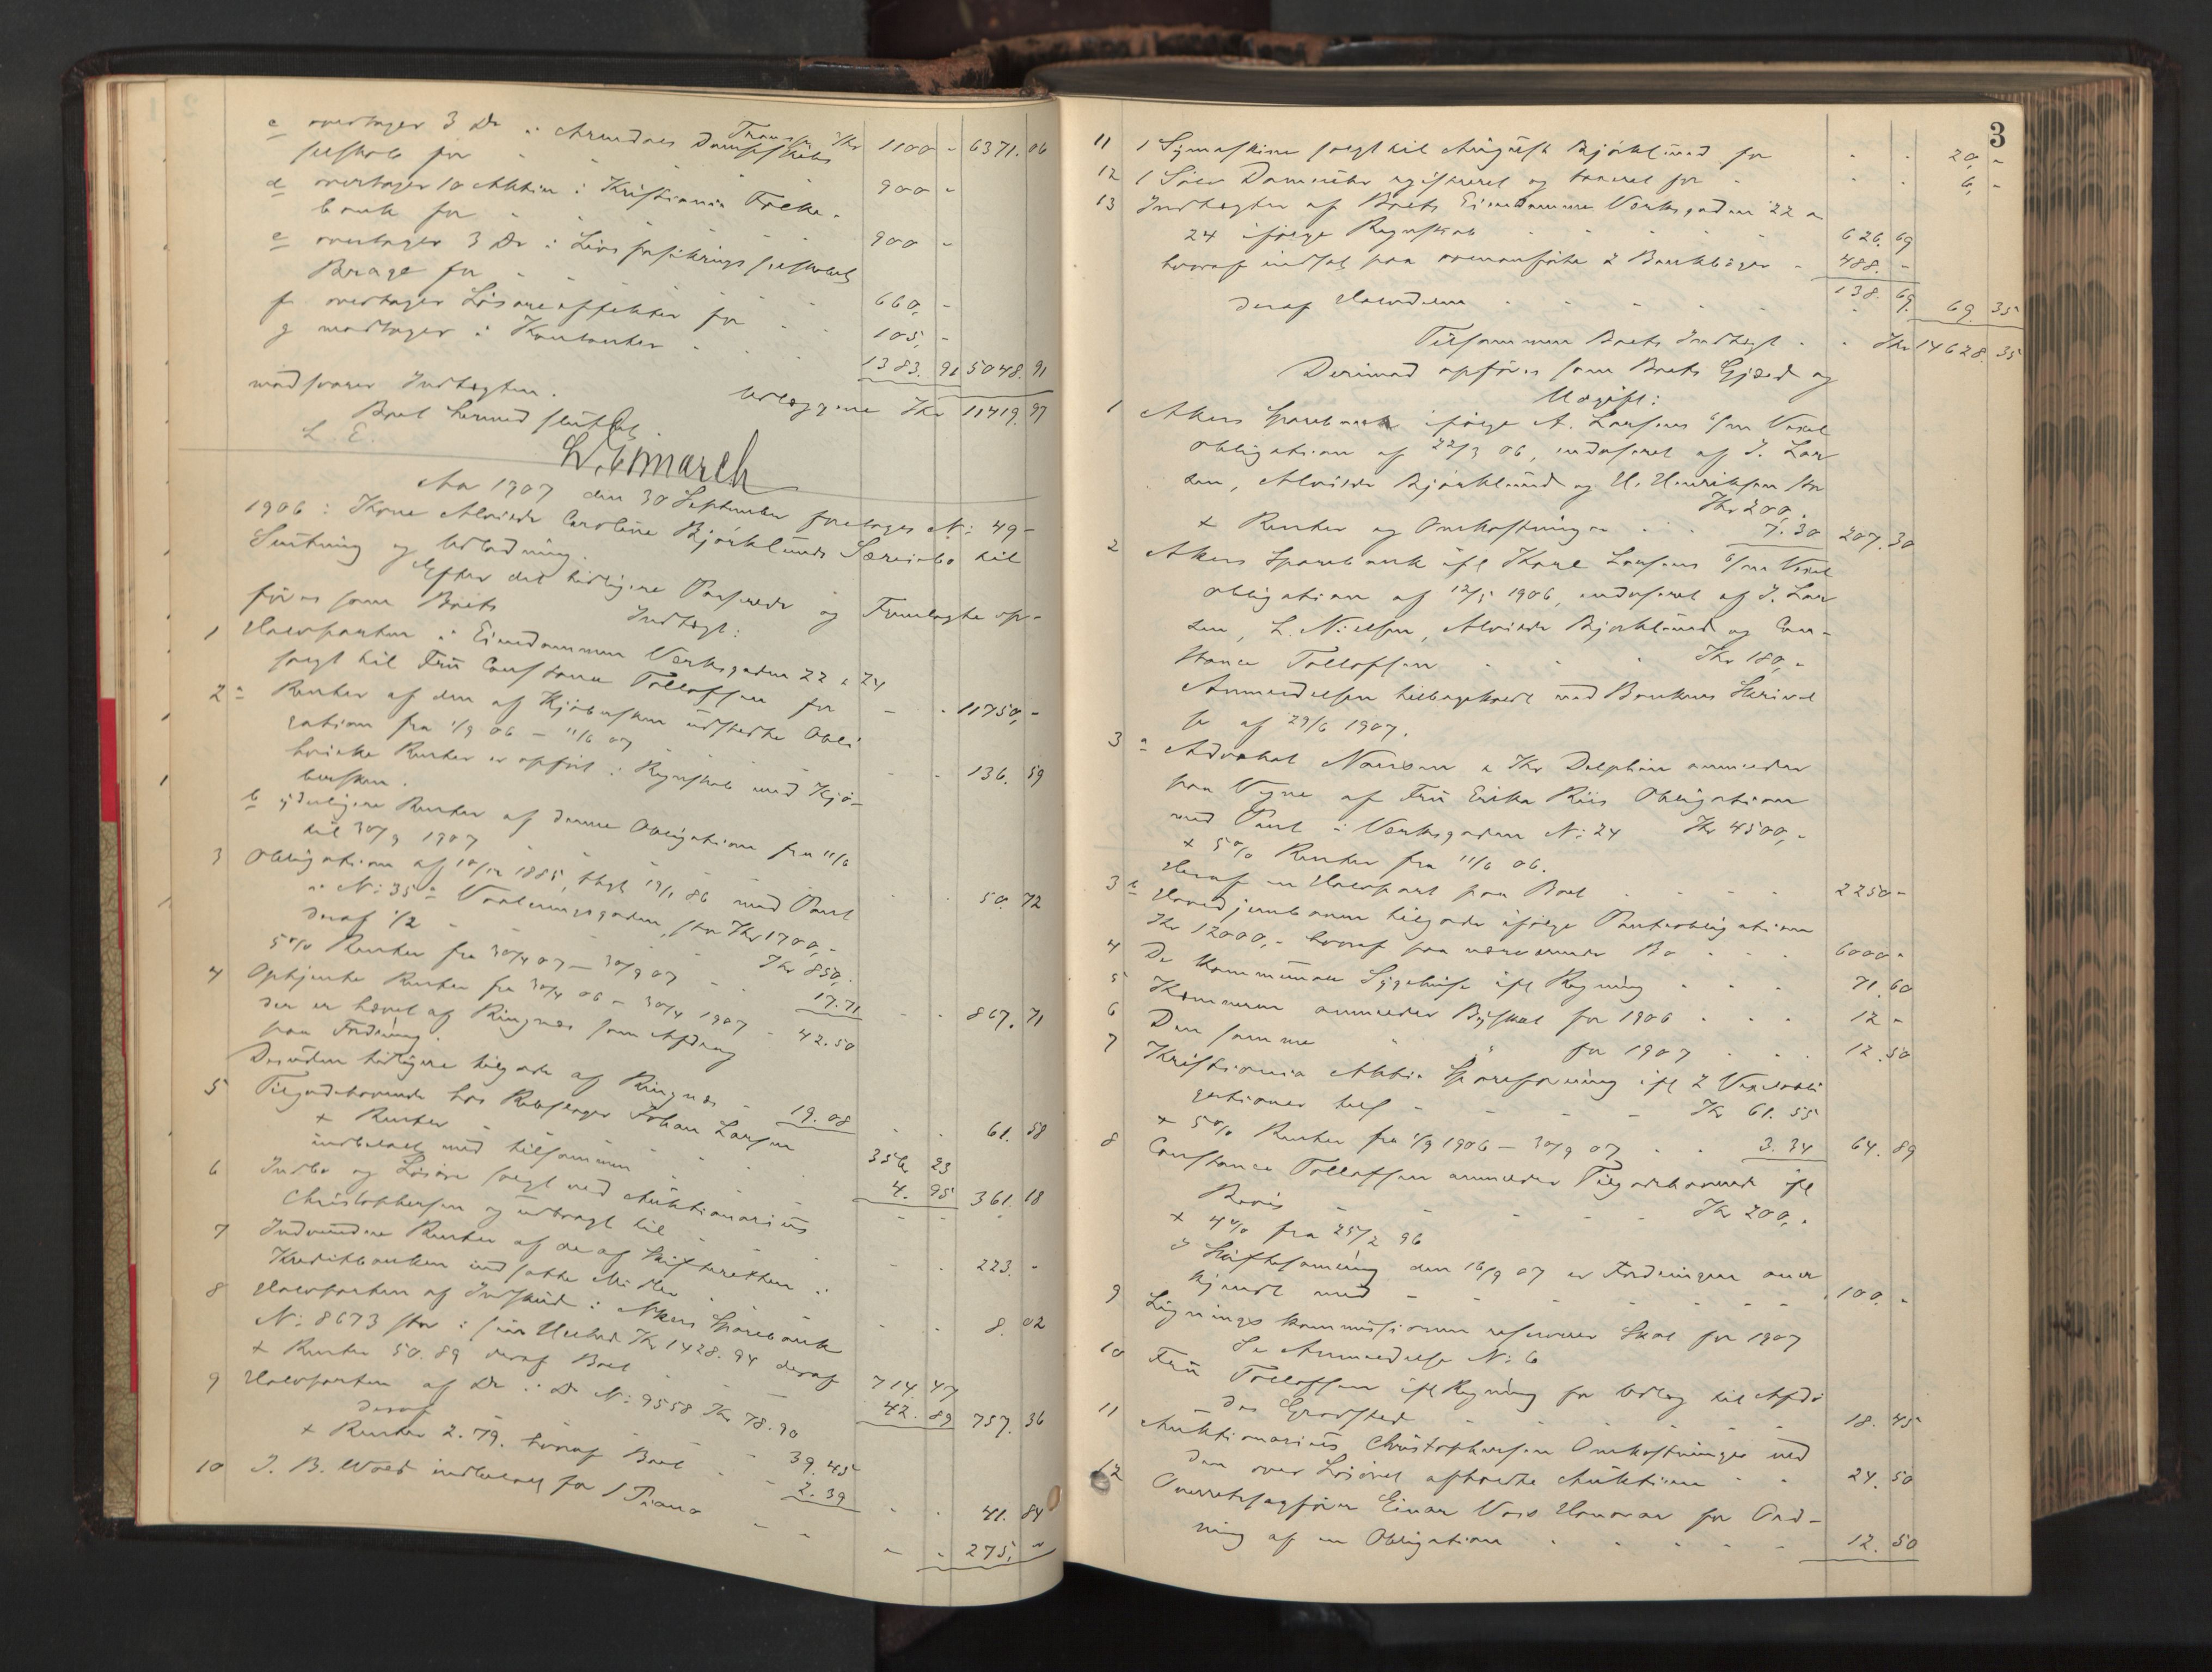 Transp. Kr 1100 - 6371.06
c overtager 3 Do i Arendals Dampskibs
selskab for - - -
900 -
d overtager 10 Aktier i Kristiania Folke-
bank for - - - 900 -
e overtager 3 Do i Livsforsikringsselskabet
Brage for - - - 660, -
f overtager Løsøreeffekter for - - 105, -
g modtager i Kontanter - - - 1383. 91 5048. 91
modsvarer Indtægten. Udlæggene Kr 11419. 97
Boet hermed sluttet.
L. E.
Aar 1907 den 30 September foretages N: 49-
1906: Kone Alvilde Caroline Bjørklunds Særeiebo til
Slutning og Udlodning.
Efter det tidligere Passerede og Fremlagte op-
føres som Boets
Indtægt:
1 Halvparten i Eiendommen Verksgaden 22 & 24
solgt til Fru Constance Tolloffsen for - - 11750, -
2 a Renter af den af Kjøbersken udstedte Obli
gation fra 1/9 06 - 11/6 07 - - -
hvilke Renter er opført i Regnskab med Kjø- - - 136. 59
bersken.
b yderligere Renter af denne Obligation fra 11/6
til 30/9 1907 - - - - - 50. 72
3 Obligation af 10/12 1885, thgl 19/1 86 med Pant
i N: 35 a Vaalerenggaden, stor Kr 1700,-
deraf 1/2 - - - - Kr 850,-
5% Renter fra 30/4 07 - 30/9 07 - 17.71 - - 867. 71
4 Optjente Renter fra 30/4 06 - 30/4 1907 - 42.50
der er hævet af Ringnes som Afdrag
paa Fordring.
Desuden tidligere tilgode af Ringnes - 19.08 - - 61. 58
5 Tilgodehavende hos Rebslager Johan Larsen 356, 23
+ Renter - - - - 4. 95 361. 18
indbetalt med tilsammen
6 Indbo og Løsøre solgt ved Auktionarius
Christophersen og udbragt til - - - - 223. -
7 Indvundne Renter af de af Skifteretten i
Kreditbanken indsatte Midler - - - 8. 02
8 Halvparten af Indskud i Akers Sparebank
N: 8673 stor i sin Helhed Kr 1428.94 deraf 714. 47
+ Renter 50.89 deraf Boet - - 42. 89 757. 36
9 Halvparten af Do i Do N: 9558 Kr 78.90
deraf - - - 39.45
+ Renter 2.79. hvoraf Boet - - 2.39 - - 41. 84
10 J. B. Wold indbetalt for 1 Piano - - - - 275, -
3
11 1 Symaskine solgt til August Bjørklund for - - 20, -
12 1 Sølv Dameuhr registreret og taxeret for - - - 6, -
13 Indtægter af Boets Eiendomme Verksgaden 22 &
24 ifølge Regnskab - - - - 626. 69
hvoraf indsat paa ovenanførte 2 Bankbøger - 488. -
138. 69
deraf Halvdelen - - - - - 69. 35
Tilsammen Boets Indtægt - - Kr 14628. 35
Derimod opføres som Boets Gjæld og
Udgift:
1 Akers Sparebank ifølge A. Larsens 6/mn Vexel
obligation af 22/3 06, endosseret af J. Lar
sen, Alvilde Bjørklund og H. Henriksen stor
Kr 200,-
+ Renter og Omkostninger - - 7.30 207. 30
2 Akers Sparebank ifl Karl Larsens 6/mn Vexel
obligation af 12/5 1906, endosseret af J. Lar
sen, L. Nielsen, Alvilde Bjørklund og Con-
stance Tolloffsen - - - Kr 180,-
Anmeldelsen tilbagekaldt med Bankens Skrivel
se af 29/6 1907.
3 a Advokat & Kr Delphin anmelder
paa Vegne af Fru Erika Riis Obligation
med Pant i Verksgaden N: 24 Kr 4500,-
+ 5% Renter fra 11/6 06.
Heraf en Halvpart paa Boet - - - - 2250 -
3 b Hovedjernbanen tilgode ifølge Pantobligation
Kr 12000,- hvoraf paa nærværende Bo - - - 6000 -
4 De kommunale Sygehuse ifl Regning - - - 71. 60
5 Kemneren anmelder Byskat for 1906 - - - 12 -
6 Den samme " " for 1907 - - - 12. 50
7 Kristiania Aktie Spareforening ifl 2 Vexelobli
gationer tils - - - - Kr 61.55
+ 5% Renter fra 1/9 1906 - 30/9 07 - - 3.34 64. 89
8 Constance Tolloffsen anmelder Tilgodehavende ifl
Bevis - - - - - Kr 200,-
+ 4% fra 25/2 96
I Skiftesamling den 16/9 07 er Fordringen aner
kjendt med - - - - - - - 100, -
9 Ligningskommissionen reserverer Skat for 1907
Se Anmeldelse N: 6
10 Fru Tolloffsen ifl Regning for Udlæg til Afdø
des Gravsted - - - - - - 18. 45
11 Auktionarius Christophersen Omkostninger ved
den over Løsøret afholdte Auktion - - 24. 50
12 Overretssagfører Einar Vors Honorar for Ord-
ning af en Obligation - - - - - 12. 50